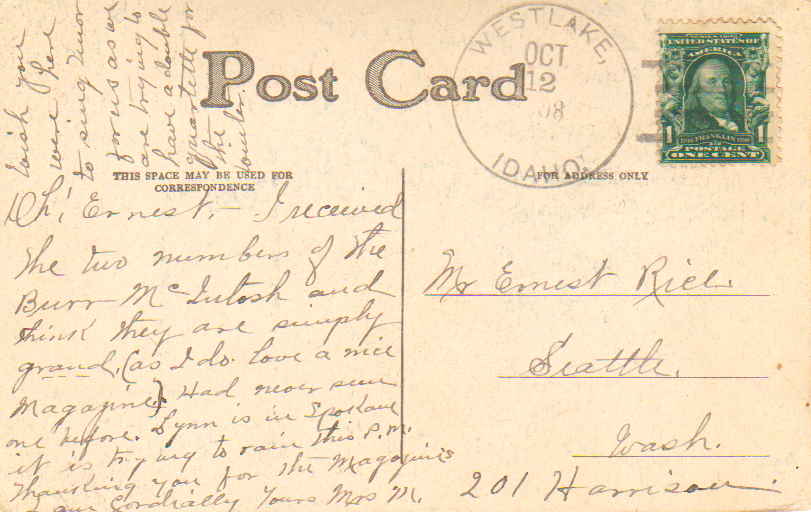 Wish you
were here
to sing Tenor
for us as we
are trying to
have a double
quartette for
the
winter.
Post Card
WESTLAKE,
OCT
12
08
IDAHO.
UNITED STATES OF
AMERICA
1 1
FRANKLIN
POSTAGE
ONE CENT
THIS SPACE MAY BE USED FOR
CORRESPONDENCE
FOR ADDRESS ONLY
Oh! Ernest,- I received
the two numbers of the
Burr McIntosh and
think they are simply
grand, (as I do love a nice
Magazine) Had never seen
one before. Lynn is in Spokane
it is trying to rain this P.M.
Thanking you for the Magazines
I am Cordially Yours Mrs M.
Mr Ernest Rice.
Seattle.
Wash.
201 Harrison